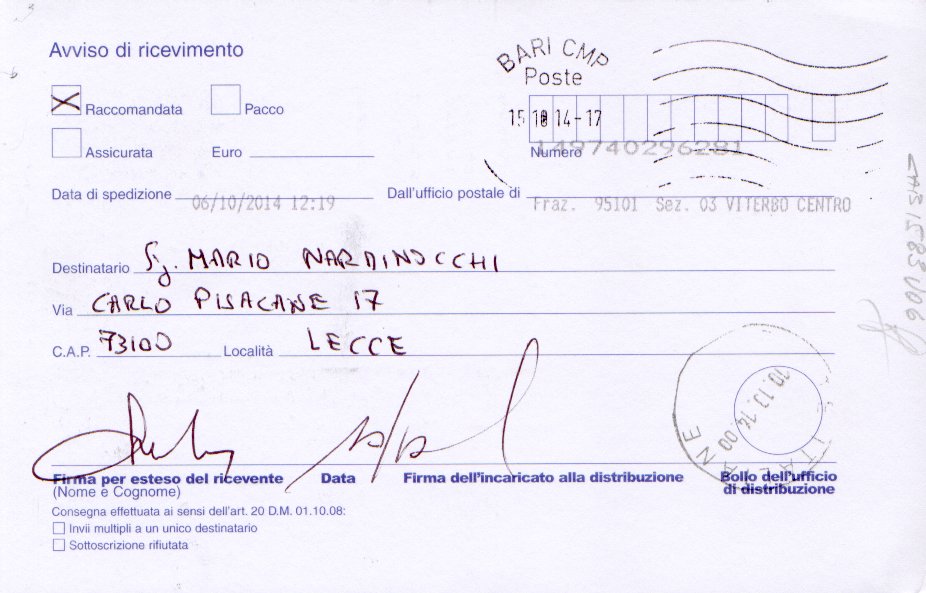 Avviso di ricevimento
BARI CMP
Poste
Raccomandata Pacco
15 10 14-17
Assicurata Euro
Numero
149740296281
Data di spedizione 06/10/2014 12:19 Dall'ufficio postale di Fraz. 95101 Sez. 03 VITERBO CENTRO
Destinatario Sig. MARIO NARDINOCCHI
Via CARLO PISACANE 17
C.A.P. 73100 Località LECCE
10.10.14 00
Firma per esteso del ricevente Data Firma dell'incaricato alla distribuzione Bollo dell'ufficio
(Nome e Cognome) di distribuzione
Consegna effettuata ai sensi dell'art. 20 D.M. 01.10.08:
Invii multipli a un unico destinatario
Sottoscrizione rifiutata